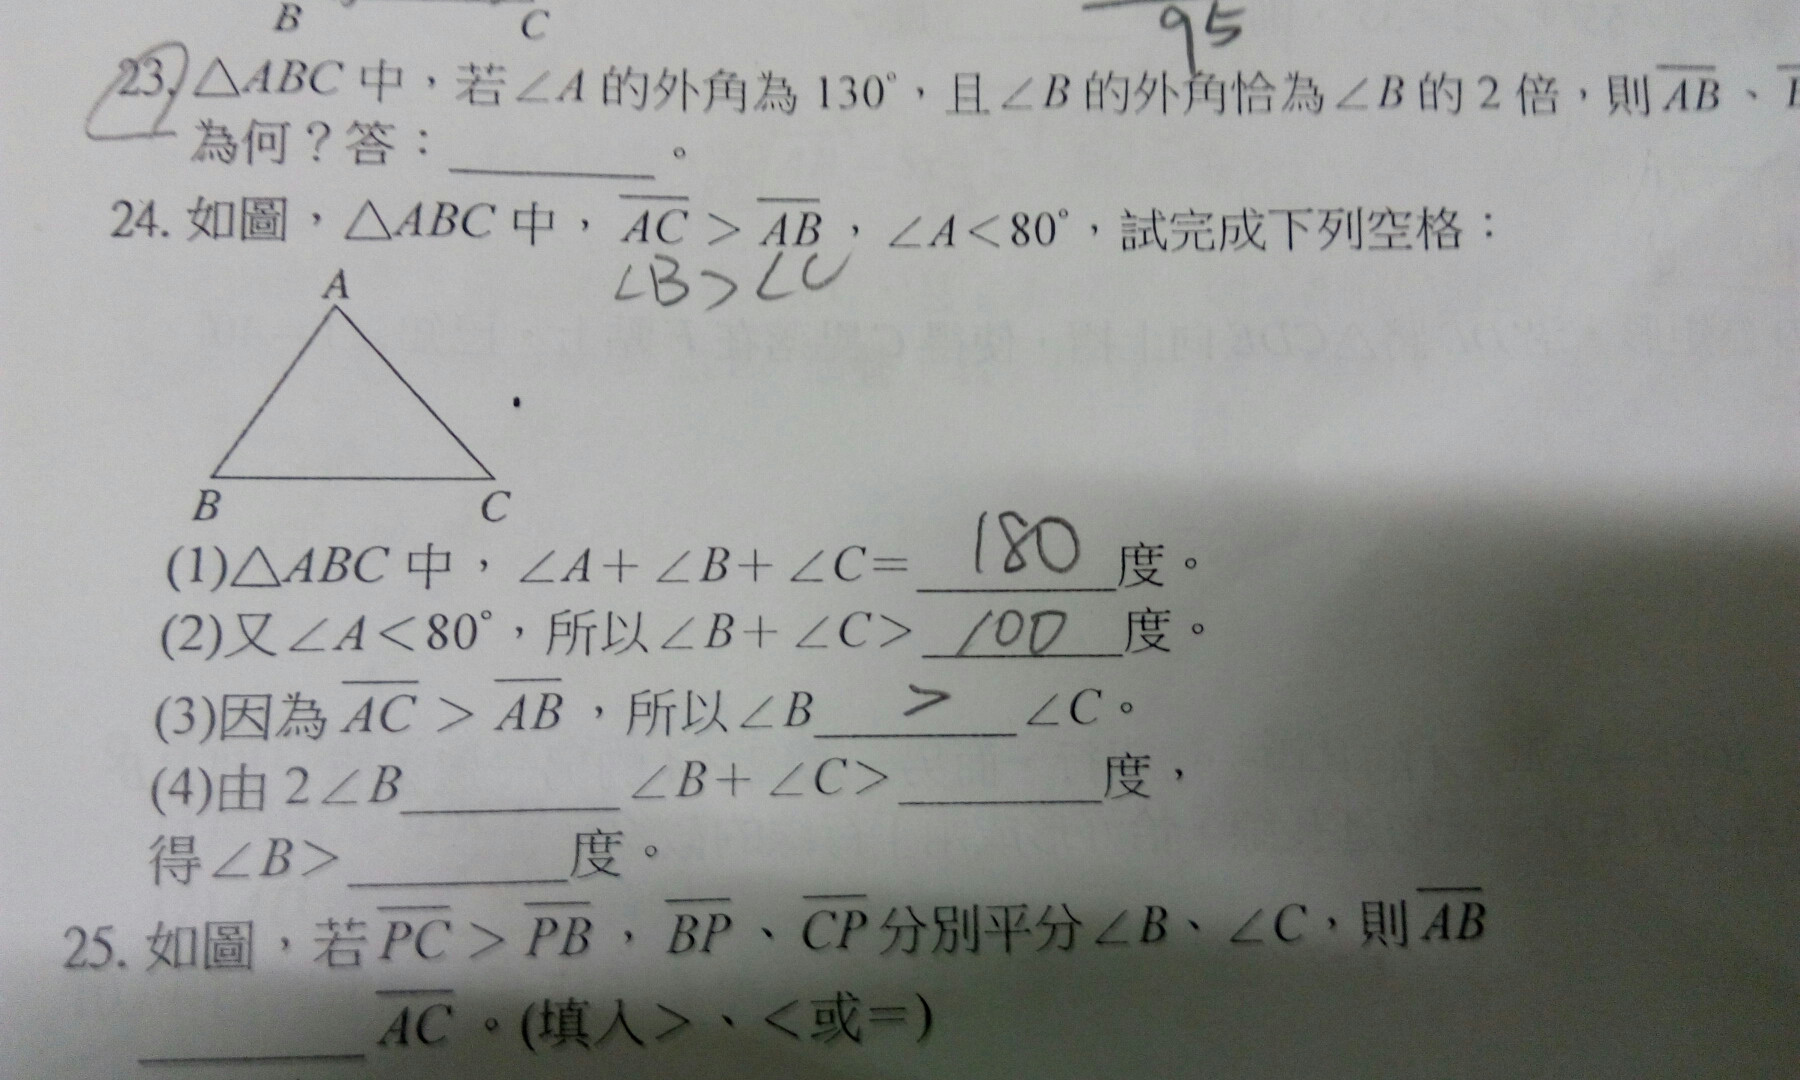 B C
95
23. △ABC 中，若∠A 的外角為 130°，且∠B 的外角恰為∠B 的 2 倍，則 AB、
為何？答：________。
24. 如圖，△ABC 中， AC > AB ，∠A<80°，試完成下列空格：
∠B>∠C
A
B C
(1)△ABC 中，∠A+∠B+∠C=180度。
(2)又∠A<80°，所以∠B+∠C>100度。
(3)因為 AC > AB ，所以∠B > ∠C。
(4)由 2∠B________∠B+∠C>________度，
得∠B>________度。
25. 如圖，若 PC > PB ， BP 、 CP 分別平分∠B、∠C，則 AB
________ AC 。(填入>、<或=)